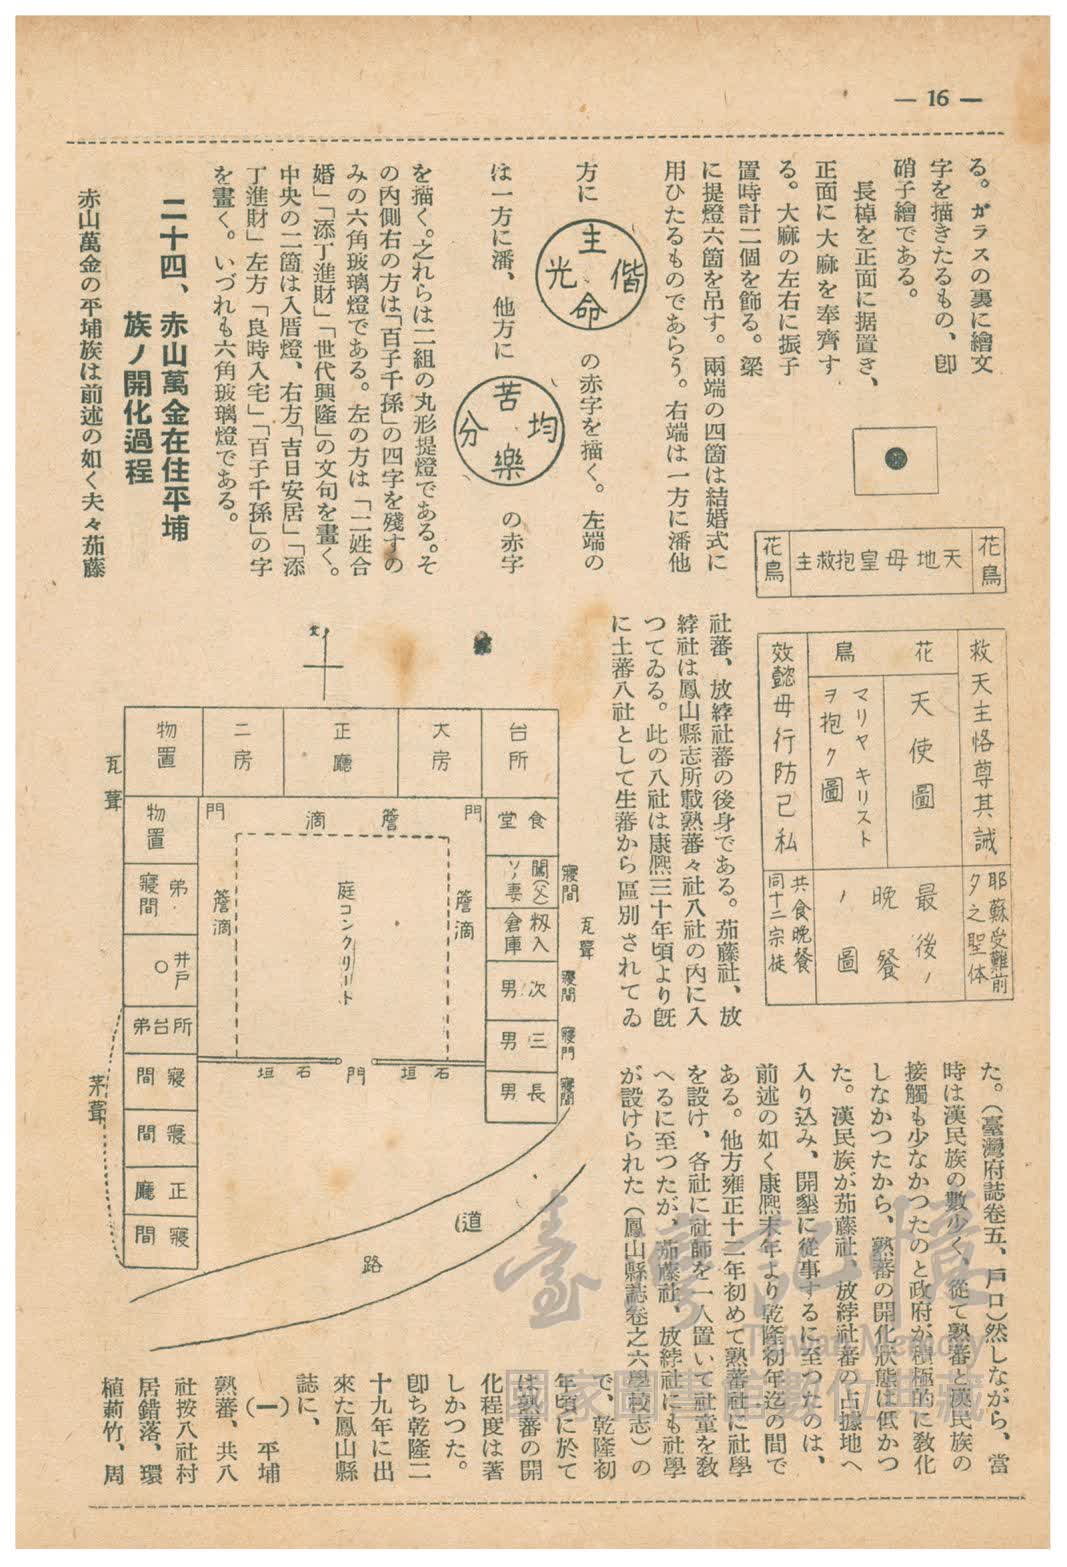 — 16 —
る。ガラスの裏に繪文
字を描きたるもの、卽
硝子繪である。
長棹を正面に据置き、
正面に大麻を奉齊す
る。大麻の左右に振子
置時計二個を飾る。梁
に提燈六箇を吊す。兩端の四箇は結婚式に
用ひたるものであらう。右端は一方に潘他
方に
主
偕
命
光
の赤字を描く。左端の
は一方に潘、他方に
苦
均
樂
分
の赤字
を描く。之れらは二組の丸形提燈である。そ
の內側右の方は「百子千孫」の四字を殘すの
みの六角玻璃燈である。左の方は「二姓合
婚」「添丁進財」「世代興隆」の文句を畫く。
中央の二箇は入厝燈、右方「吉日安居」「添
丁進財」左方「良時入宅」「百子千孫」の字
を畫く。いづれも六角玻璃燈である。
二十四、赤山萬金在住平埔
族ノ開化過程
赤山萬金の平埔族は前述の如く夫々茄藤
花鳥
天地母皇抱救主
花鳥
救天主恪尊其誡
花鳥
天使圖
マリヤキリスト
ヲ抱ク圖
效懿母行防己私
耶蘇受難前
夕之聖体
最後ノ
晩餐
ノ圖
共食晩餐
同十二宗徒
社蕃、放䌇社蕃の後身である。茄藤社、放
䌇社は鳳山縣志所載熟蕃々社八社の內に入
つてゐる。此の八社は康熙三十年頃より旣
に土蕃八社として生蕃から區別されてゐ
北
台所
大房
正廳
二房
物置
瓦葺
物置
門
簷滴
門
食堂
弟寢間
簷滴
庭コンクリート
簷滴
闖(父)
ソノ妻
寢間
瓦葺
籾入
倉庫
井戶
次男
寢間
弟台所
三男
寢間
石垣
門
石垣
長男
寢間
茅葺
寢間
寢間
正廳
寢間
道
路
た。(臺灣府誌卷五、戶口)然しながら、當
時は漢民族の數少く、從て熟蕃と漢民族の
接觸も少なかつたのと政府が積極的に敎化
しなかつたから、熟蕃の開化狀態は低かつ
た。漢民族が茄藤社、放䌇社蕃の占據地へ
入り込み、開墾に從事するに至つたのは、
前述の如く康熙末年より乾隆初年迄の間で
ある。他方雍正十二年初めて熟蕃社に社學
を設け、各社に社師を一人置いて社童を敎
へるに至つたが、茄藤社、放䌇社にも社學
が設けられた(鳳山縣誌卷之六學校志)の
で、乾隆初
年頃に於て
は熟蕃の開
化程度は著
しかつた。
卽ち乾隆二
十九年に出
來た鳳山縣
誌に、
(一)平埔
熟蕃、共八
社按八社村
居錯落、環
植莿竹、周
臺灣記憶
Taiwan Memory
國家圖書館數位典藏